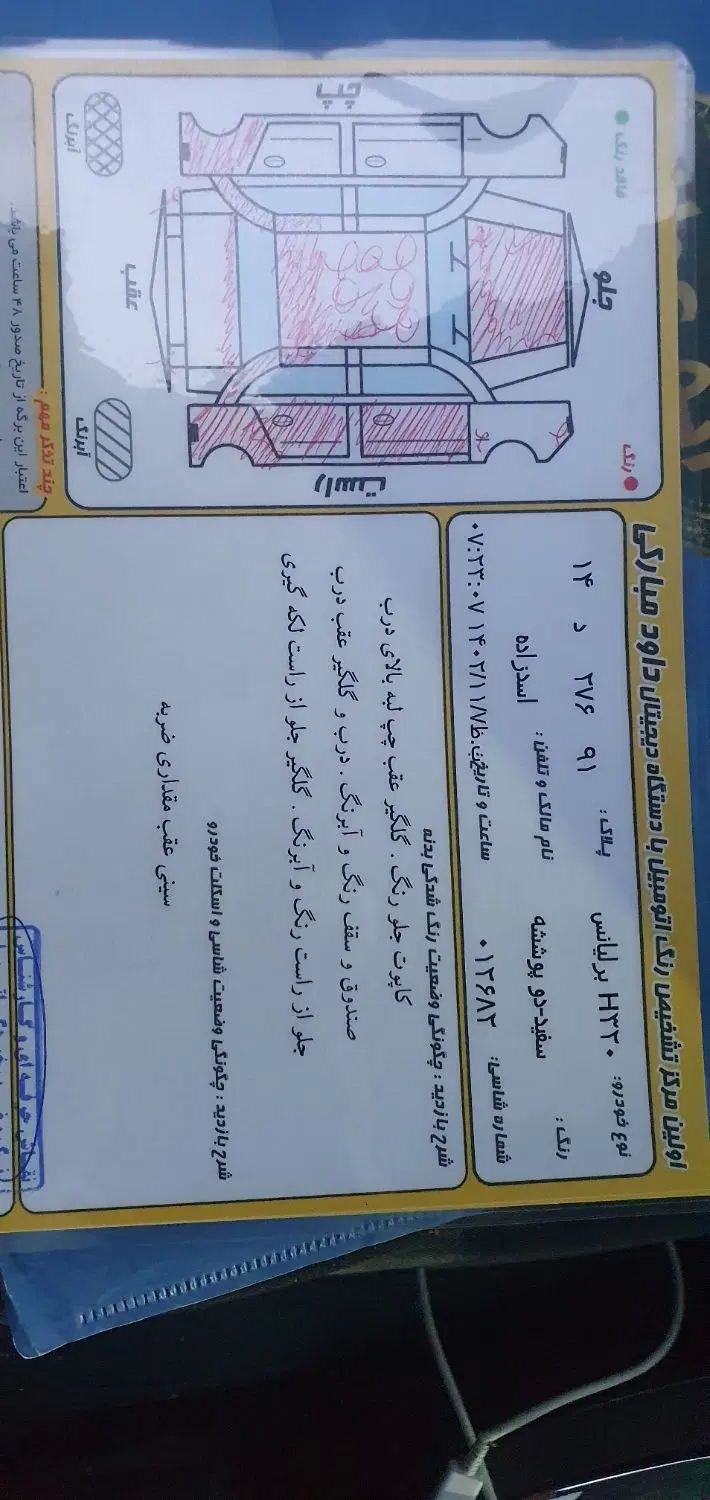 اولین مرکز تشخیص رنگ اتومبیل با دستگاه دیجیتال داود مبارکی
نوع خودرو: H۳۳۰ برلیانس
پلاک: ۹۱ ۲۷۶ د ۱۴
رنگ: سفید-دو پوششه
نام مالک و تلفن: اسدزاده
شماره شاسی: ۰۱۲۶۸۲
ساعت و تاریخ: ۱۴۰۲/۱۱/۷ ۰۷:۲۳:۰۷
شرح بازدید: چگونگی وضعیت رنگ شدگی بدنه
کاپوت جلو رنگ . گلگیر عقب چپ لبه بالای درب
صندوق و سقف رنگ و آبرنگ . درب و گلگیر عقب درب
جلو از راست رنگ و آبرنگ . گلگیر جلو از راست لکه گیری
شرح بازدید: چگونگی وضعیت شاسی و اسکلت خودرو
سینی عقب مقداری ضربه
رنگ
فاقد رنگ
جلو
راست
چپ
عقب
آبرنگ
آبرنگ
چند تذکر مهم:
اعتبار این برگه از تاریخ صدور ۴۸ ساعت می باشد.